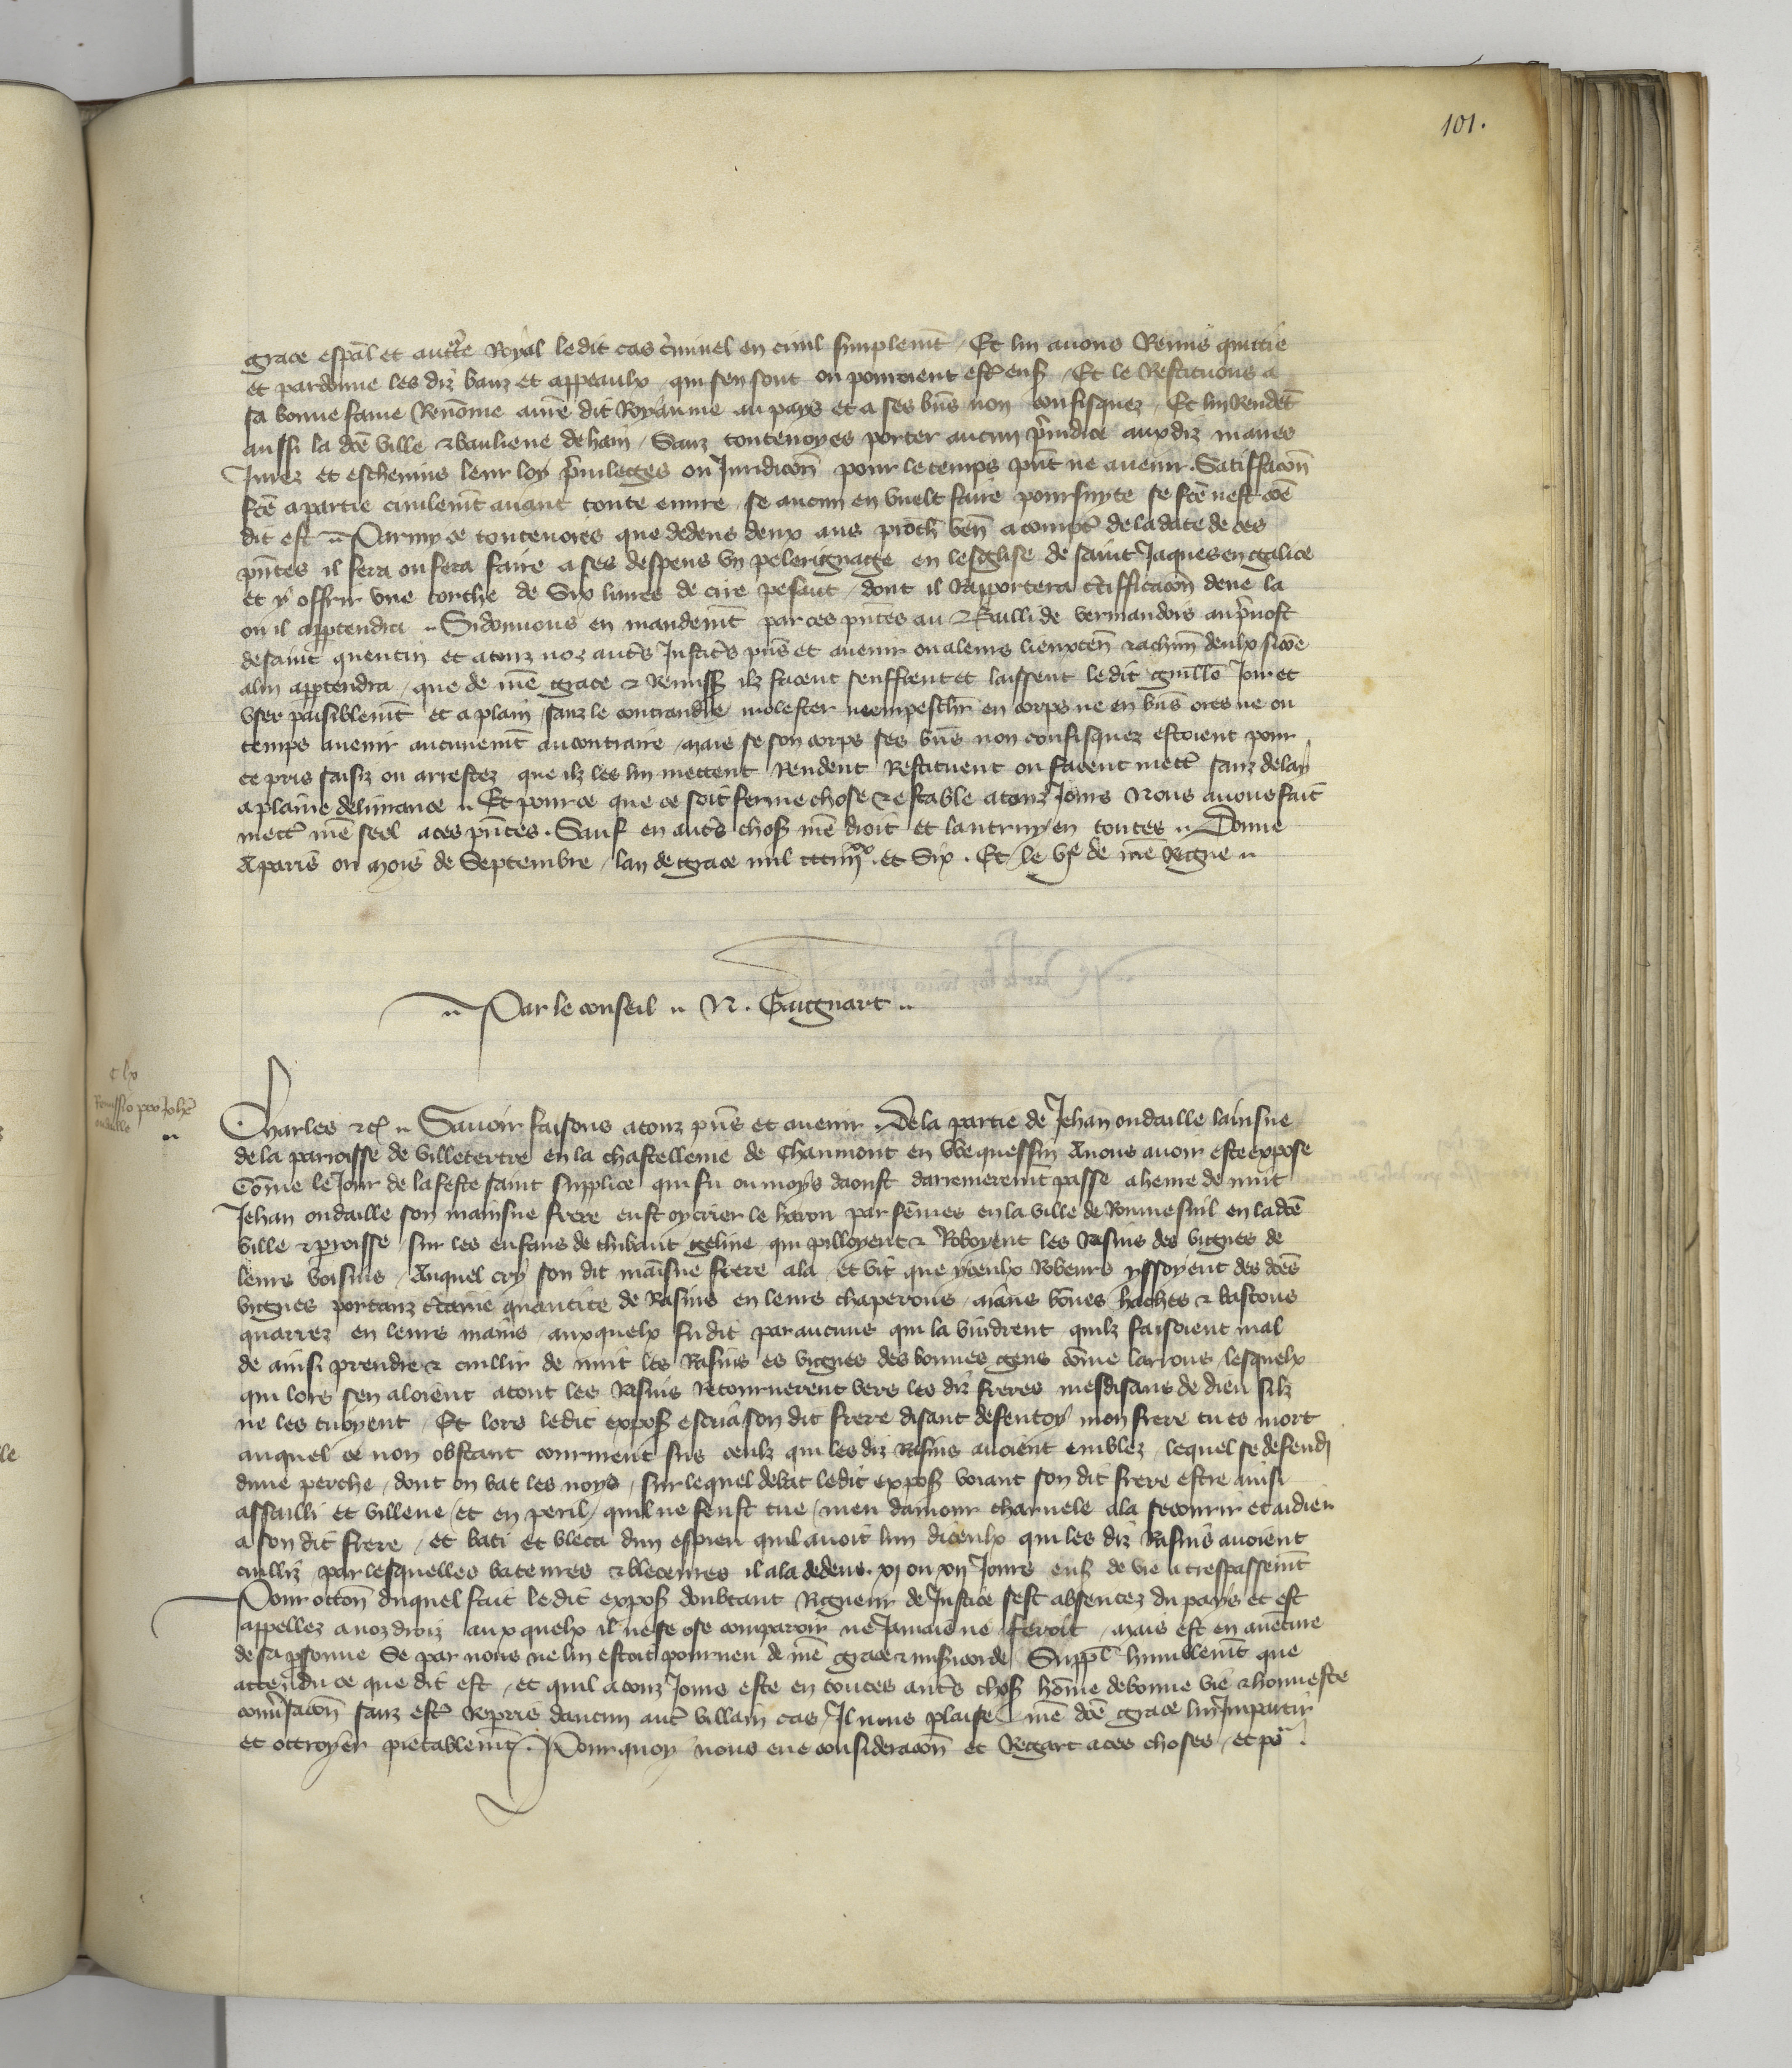 101.
grace espāl et auctte Royal ledit cas c̄minel en civil simplemt̄ / Et lui avons Remis quittie
et pardonne les diz banz et appeaulx qui sen sont ou pourroient estre ensuis / Et le Restituons a
sa bonne fame Renōmee a nr̄e dit Royaume au pays et a ses biēs non confisquez / Et lui Rendēt
aussi la dc̄e ville & banlieue de ham / Sanz toutevoyes porter aucun p̄iudice aux diz maires
Jurez et eschevins leur loy p̄vileges ou Juridicōn pour le temps pn̄t ne avenir . Satiffacōn
fc̄e a partie civilemt̄ avant toute euvre se aucun en vuelt faire poursuyte se fc̄e nest cōe
dit est Parmy ce toutevoies que dedens deux ans proch̄ ven̄ a compter de la date de ces
pn̄tes il fera ou fera faire a ses despens un pelerignage en lesglise de saint Jaques en galice
et y offrir une torche de Six livres de cire pesant / dont il Rapportera c̄tifficacōn deue la
ou il appartendra Si donnons en mandemt̄ par ces pn̄tes au Bailli de vermandois au p̄vost
de saint quentin et a touz noz aut̄s Justic̄s pn̄s et avenir ou a leurs lieuxten̄ & a chūn deulx si cōe
a lui appartendra / que de nr̄e grace & Remiss̄ ilz facent seuffrent et laissent ledit guillē Joir et
user paisiblemt̄ et a plain sanz le contraindre molester ne empeschr̄ en corps ne en biēs ores ne ou
temps avenir aucunemt̄ au contraire / mais se son corps ses biēs non confisquez estoient pour
ce pris saisiz ou arrestez que ilz les lui mettent Rendent Restituent ou facent mettr̄ sanz delay
a plaine delivrance Et pour ce que ce soit ferme chose & estable a touz Jours Nous avons fait
mettr̄ nr̄e seel a ces pn̄tes . Sauf en aut̄s chos̄ nr̄e droit et lautruy en toutes Donne
A paris ou mois de Septembre / lan de grace mil ccciiijxx. et Six . Et le vje de nr̄e Regne
Par le conseil N. Gaignart
Remissio pro Joh̄e
oudaille
Charles &c̄ Savoir faisons a touz pn̄s et avenir De la partie de Jehan oudaille lainsne
de la parroisse de villetertre en la chastellenie de Chaumont en Wequessin A nous avoir este expose
Cōme le Jour de la feste saint Supplice qui fu ou moys daoust darrenieremt̄ passe a heure de nuit
Jehan oudaille son mainsne frere eust oy crier le harou par fēmes en la ville de Ronnesnil en la dc̄e
ville & p̄roisse sur les enfans de thibaut geline qui pilloyent & Roboyent les Rasins des vignes de
leurs voisins / Auquel cry son dit mainsne frere ala et vit que yceulx Robeurs yssoyent des dc̄es
vignes portanz c̄taine quantite de Rasins en leurs chaperons / aiāns bōnes haches & bastons
quarrez en leurs mains auxquelx fu dit par aucuns qui la vindrent quilz faisoient mal
de ainsi prendre & cuillir de nuit les Rasins es vignes des bonnes gens cōme larrons / lesquelx
qui lors sen aloient atout les Rasins Retournerent vers les diz freres mesdisans de dieu silz
ne les tuoyent / Et lors ledit expos̄ escria son dit frere disant deffen toy mon frere tu es mort
auquel ce non obstant coururent sus ceulx qui les diz Rasins avoient emblez lequel se defendi
dune perche / dont on bat les noys / sur lequel debat ledit expos̄ voiant son dit frere estre ainsi
assailli et villene / et en peril quil ne feust tue / meu damour charnele ala secourir et aidier
a son dit frere / et bati et bleca dun espieu quil avoit lun diceulx qui les diz Rasins avoient
cuilliz par lesquelles bateures & bleceures il ala dedens xj ou xij Jours ens̄ de vie a trespassemt̄
Pour occōn duquel fait ledit expos̄ doubtant Rigueur de Justice sest absentez du pays et est
appellez a noz droiz auxquelx il ne se ose comparoir ne Jamais ne feroit / mais est en aventure
de sa p̄sonne Se par nous ne lui estoit pourveu de nr̄e grace & mis̄icorde Suppl̄ humblemt̄ que
attendu ce que dit est / et quil a touz Jours este en toutes aut̄s chos̄ hōme de bonne vie & honneste
conv̄sacōn sanz estr̄ Repris daucun aut̄ villain cas / Il nous plaise nr̄e dc̄e grace lui Impartir
et ottroyer pietablemt̄ . Pourquoy nous eue consideracōn et Regart a ces choses / et po